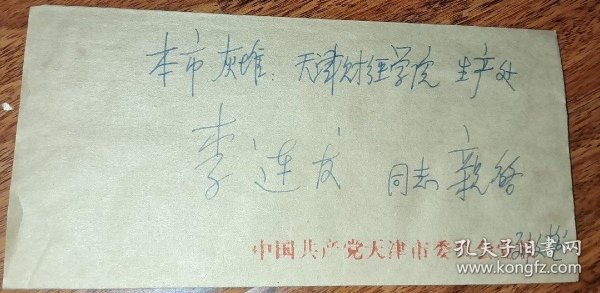 本市灰堆 天津财经学院 生产处
李连友 同志 亲啓
中国共产党天津市委
孔夫子旧书网
www.kongfz.com